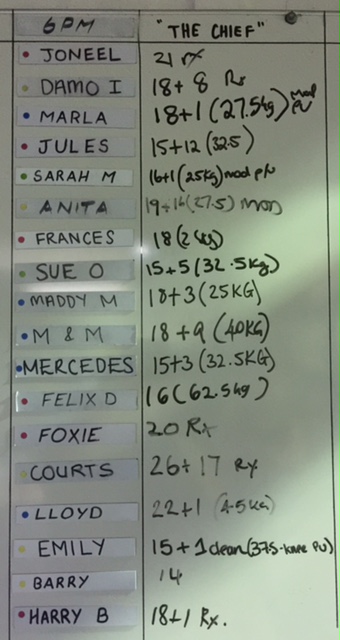 6PM "THE CHIEF"
JONEEL 21 rx
DAMO I 18+8 Rx
MARLA 18+1 (27.5kg) mod PU
JULES 15+12 (32.5)
SARAH M 16+1 (25kg) mod p/u
ANITA 19+16 (27.5) MOD
FRANCES 18
SUE O 15+5 (32.5kg)
MADDY M 18+3 (25KG)
M & M 18+9 (40KG)
MERCEDES 15+3 (32.5KG)
FELIX D 16 (62.5kg)
FOXIE 20 Rx
COURTS 26+17 Rx
LLOYD 22+1
EMILY 15+1 clean (37.5-knee PU)
BARRY 14
HARRY B 18+1 Rx.